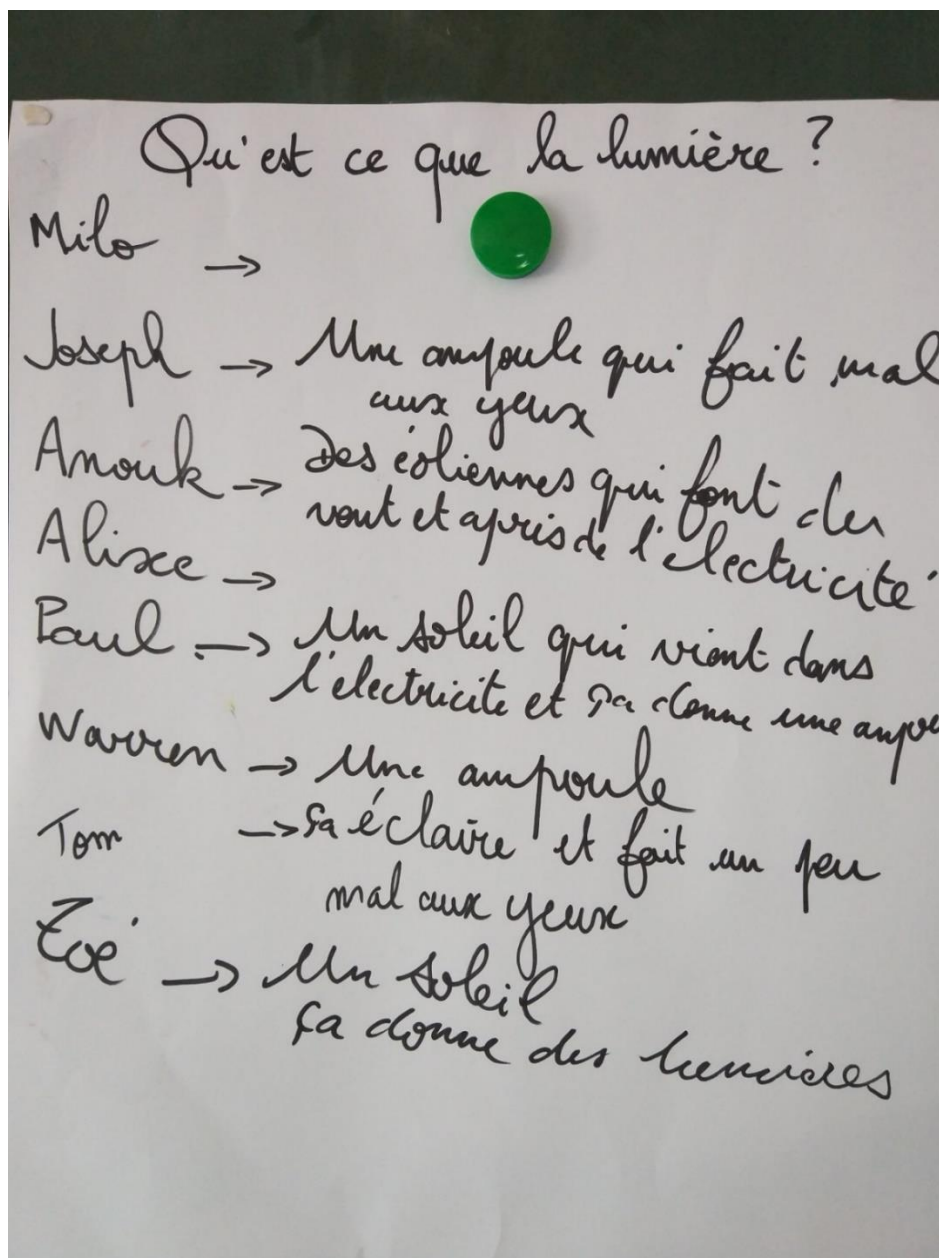 Qu'est ce que la lumière ?
Milo →
Joseph → Une ampoule qui fait mal
aux yeux
Anouk → Des éoliennes qui font du
vent et après de l'electricité
Alixce →
Paul → Un soleil qui vient dans
l'electricite et ça donne une
Warren → Une ampoule
Tom → ça éclaire et fait un peu
mal aux yeux
Zoé → Un soleil
ça donne des lumières